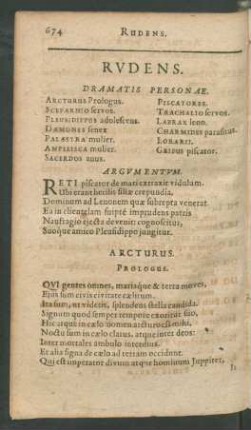 674 RUDENS.
RVDENS.
DRAMATIS PERSONAE.
ARCTURUS Prologus.
SCEPARNIO servos.
PLEUSIDIPPUS adolescens.
DÆMONES senex
PALÆSTRA mulier.
AMPELISCA mulier.
SACERDOS anus.
PISCATORES.
TRACHALIO servos.
LABRAX leno.
CHARMIDES parasitus.
LORARII.
GRIPUS piscator.
ARGVMENTVM.
RETI piscator de mari extraxit vidulum,
Ubi erant herilis filiæ crepundia,
Dominum ad Lenonem quæ subrepta venerat.
Ea in clientelam suipte imprudens patris
Naufragio ejecta devenit: cognoscitur,
Suoque amico Plesidippo jungitur.
ARCTURUS.
PROLOGUS.
QVI gentes omnes, mariaque & terras movet,
Ejus sum civis civitate cælitum.
Ita sum, ut videtis, splendens stella candida,
Signum quod semper tempore exoritur suo,
Hic atque in cælo: nomen arcturo est mihi,
Noctu sum in cælo clarus, atque inter deos:
Inter mortales ambulo interdius.
Et alia signa de cælo ad terram accidunt.
Qui est imperator divum atque hominum Juppiter,